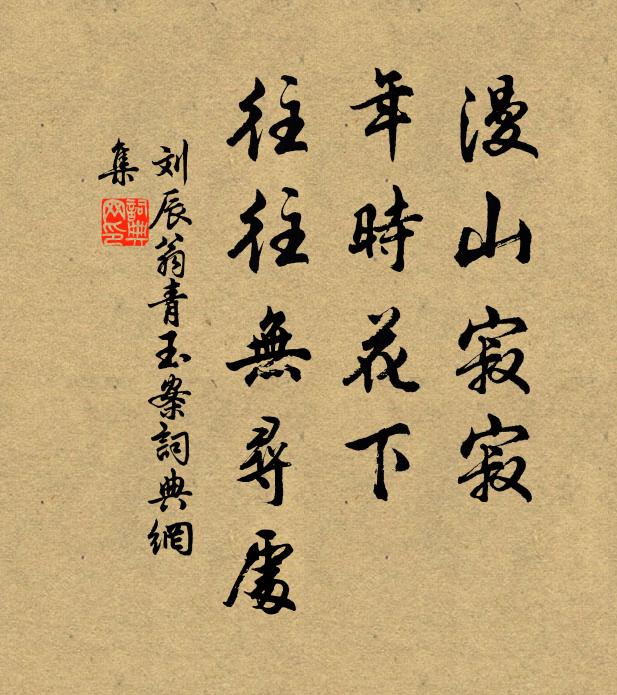 漫山寂寂
年時花下
往往無尋處
刘辰翁青玉案詞典網
集
詞典
网印